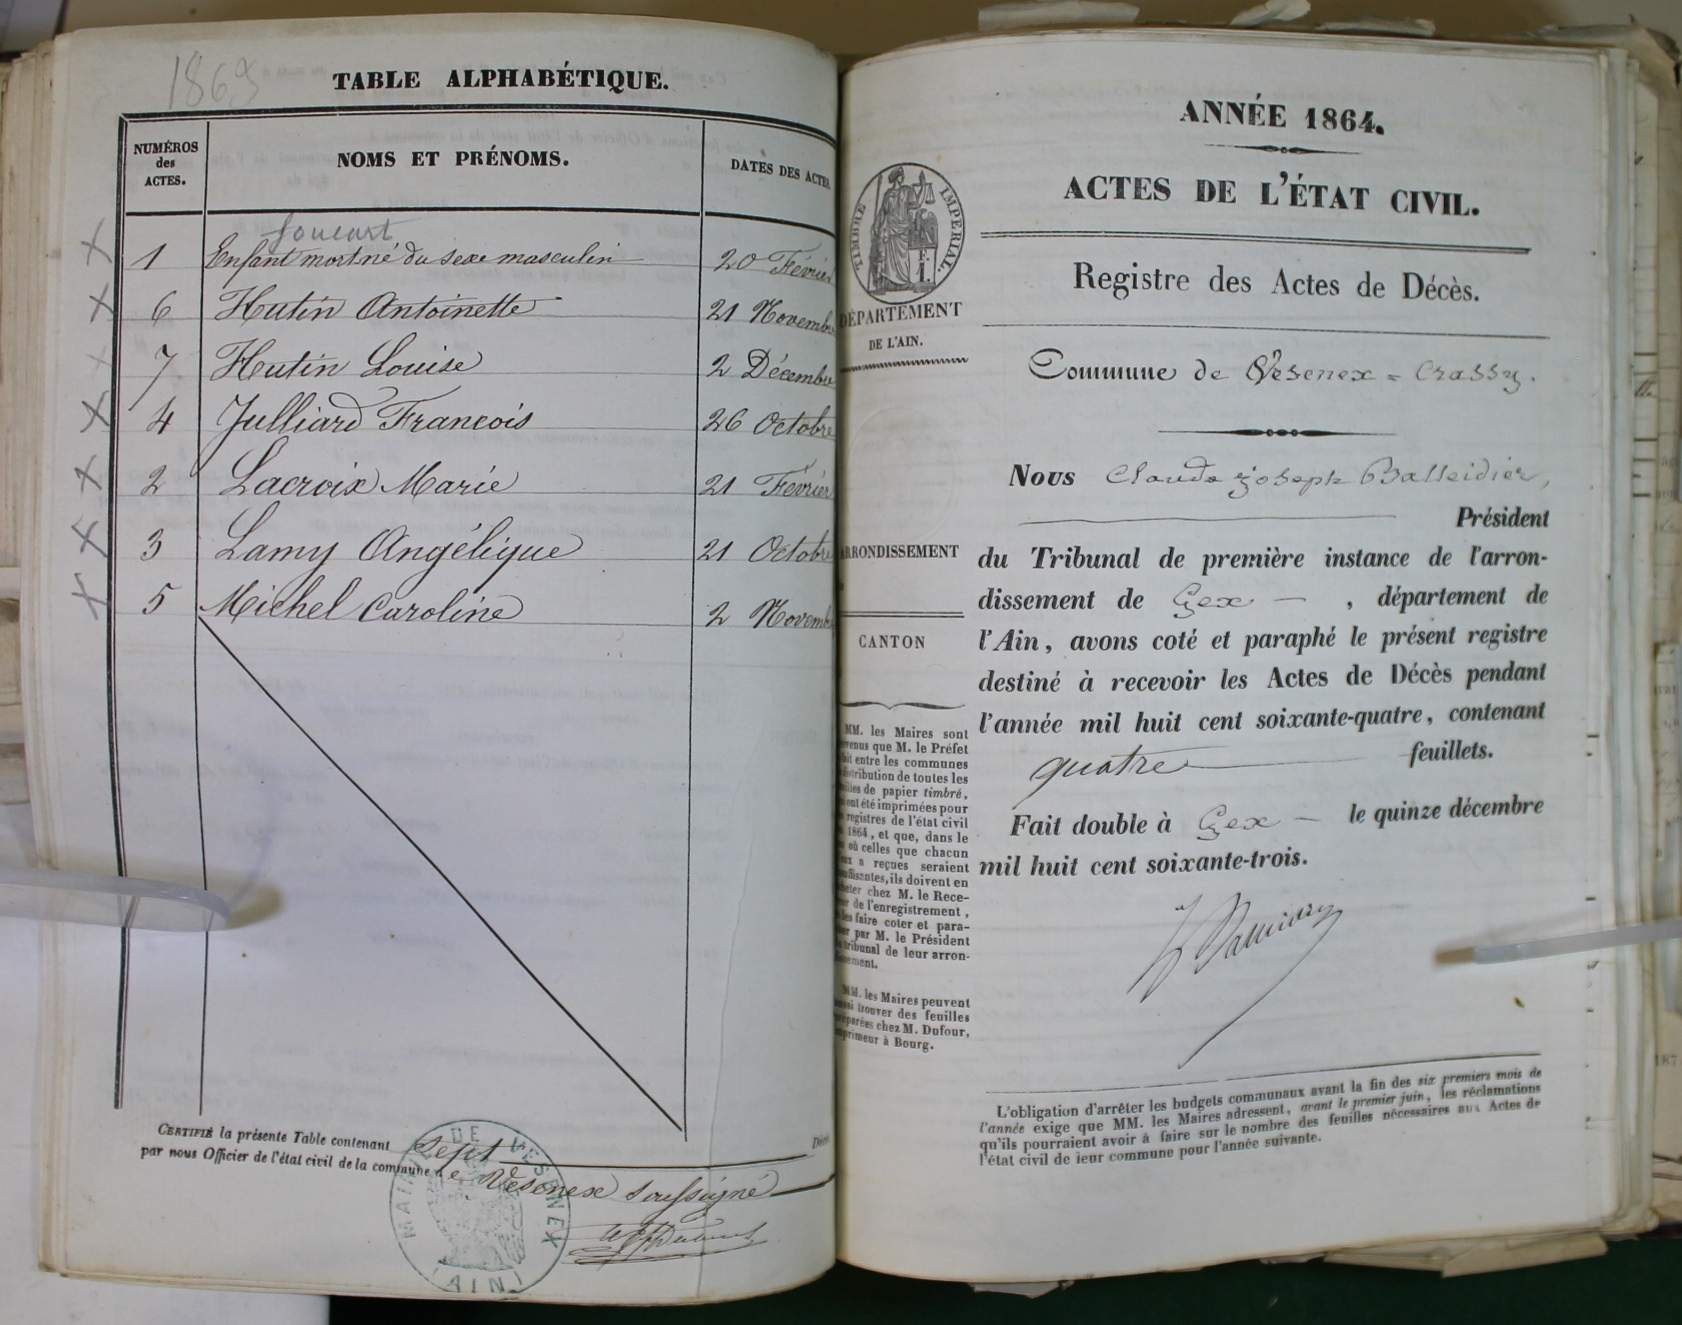 1863
TABLE ALPHABÉTIQUE.
NUMÉROS
des
ACTES.
NOMS ET PRÉNOMS.
DATES DES ACTES
foucart
1 Enfant mort né du sexe masculin 20 Février
6 Hutin Antoinette 21 Novembre
7 Hutin Louise 2 Décembre
4 Julliard François 26 Octobre
2 Lacroix Marie 21 Février
3 Lamy Angélique 21 Octobre
5 Michel Caroline 2 Novemb
CERTIFIÉ la présente Table contenant Sept Décès
par nous Officier de l'état civil de la commune de Vesenex soussigné
MAIRIE DE VESENEX
(AIN)
ANNÉE 1864.
ACTES DE L'ÉTAT CIVIL.
Registre des Actes de Décès.
Commune de Vesenex = Crassy.
Nous Claude Joseph Balleidier,
Président
du Tribunal de première instance de l'arron-
dissement de Gex — , département de
l'Ain, avons coté et paraphé le présent registre
destiné à recevoir les Actes de Décès pendant
l'année mil huit cent soixante-quatre, contenant
quatre feuillets.
Fait double à Gex — le quinze décembre
mil huit cent soixante-trois.
L'obligation d'arrêter les budgets communaux avant la fin des six premiers mois de
l'année exige que MM. les Maires adressent, avant le premier juin, les réclamations
qu'ils pourraient avoir à faire sur le nombre des feuilles nécessaires aux Actes de
l'état civil de leur commune pour l'année suivante.
TIMBRE IMPÉRIAL.
F.
1.
DÉPARTEMENT
DE L'AIN.
ARRONDISSEMENT
CANTON
MM. les Maires sont
venus que M. le Préfet
fait entre les communes
distribution de toutes les
feuilles de papier timbré,
ont été imprimées pour
registres de l'état civil
1864, et que, dans le
où celles que chacun
eux a reçues seraient
suffisantes, ils doivent en
acheter chez M. le Rece-
veur de l'enregistrement,
les faire coter et para-
pher par M. le Président
tribunal de leur arron-
dissement.
MM. les Maires peuvent
aussi trouver des feuilles
préparées chez M. Dufour,
imprimeur à Bourg.
187